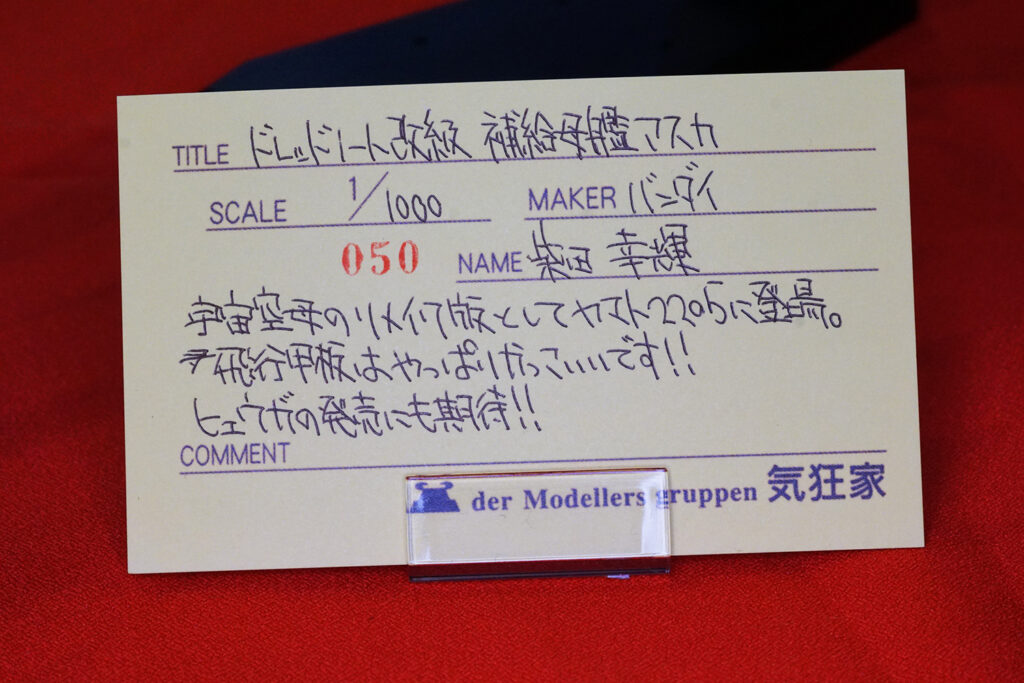 TITLE ドレッドノート改級 補給母艦アスカ
SCALE 1/1000 MAKER バンダイ
050 NAME 柴田 幸輝
宇宙空母のリメイク版としてヤマト2205に登場。
飛行甲板はやっぱりかっこいいです!!
ヒュウガの発売にも期待!!
COMMENT
der Modellers gruppen 気狂家